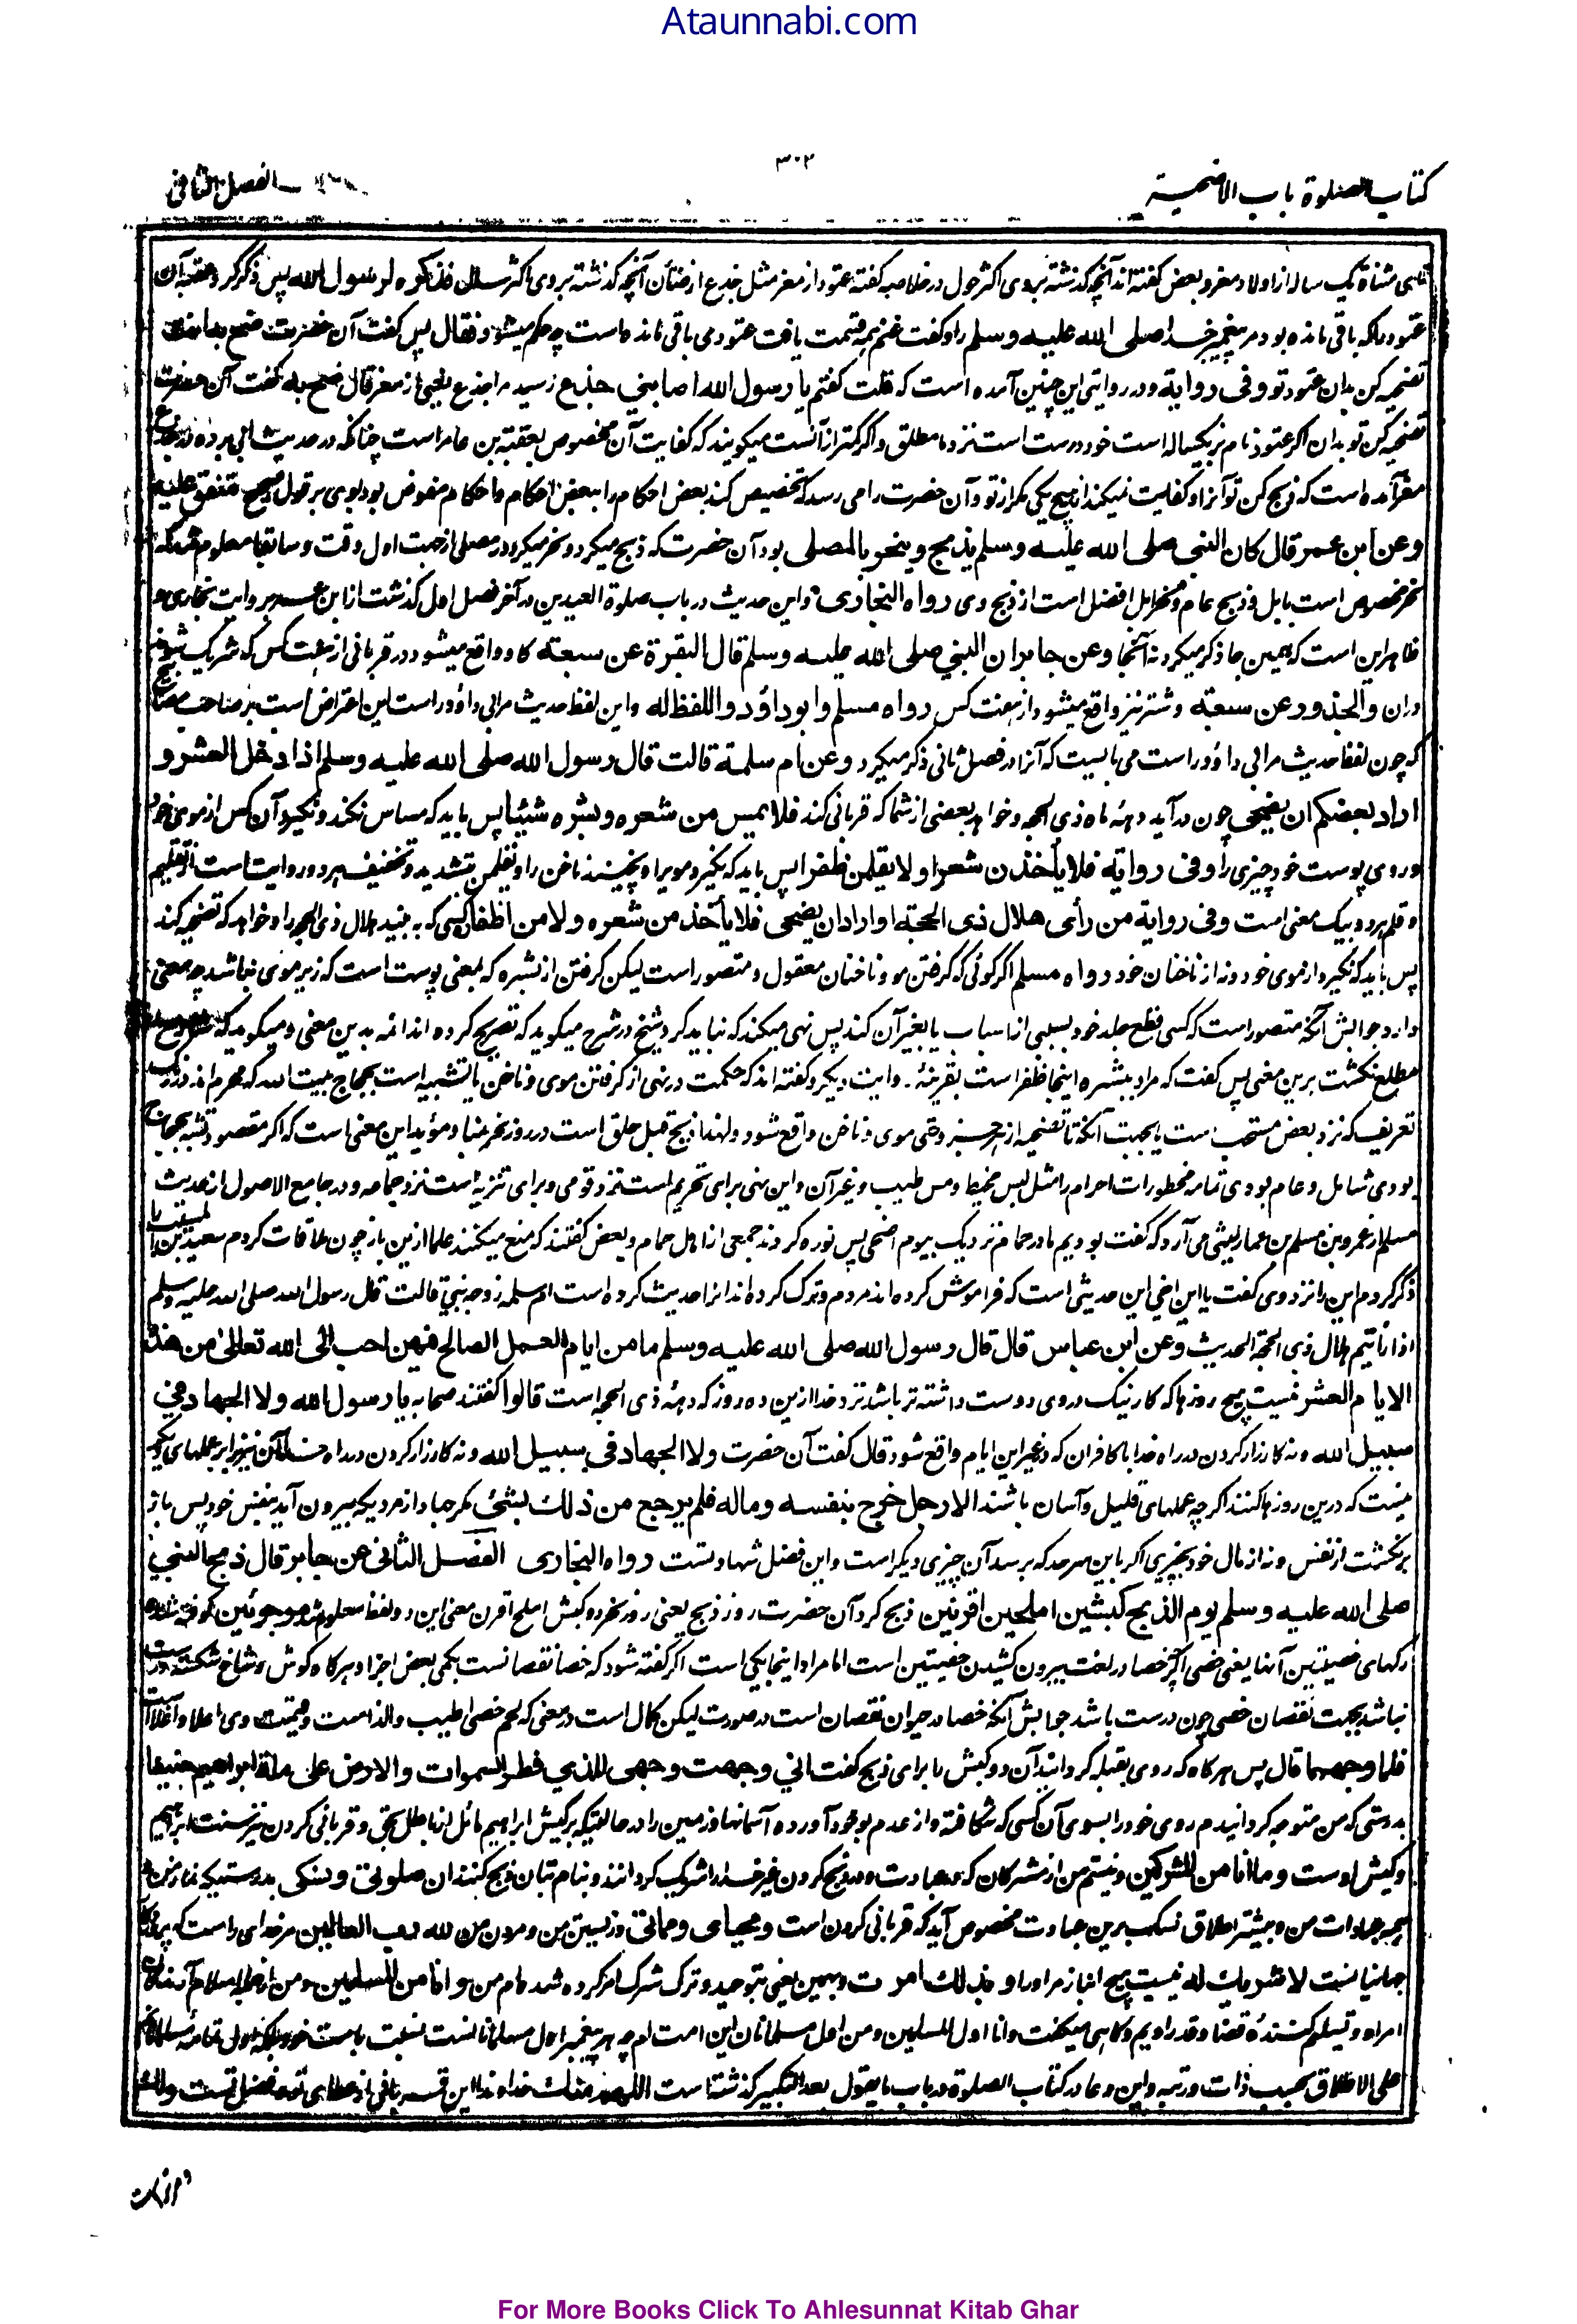 Ataunnabi.com
کتاب الصلوة باب الاضحیة
۳۰۲
الفصل الثانی
مثناة یک ساله از اولاد معز و بعض گفته اند آنچه گذشته بروی اکثر حول در خلاصه گفته عتود از معز مثل جذع از ضأن آنچه گذشته بروی اکثر سال فذکره لرسول الله پس ذکر کرد عقبه آن
عتود را که باقی مانده بود مر پیغمبر خدا صلی الله علیه وسلم را و گفت غنم همه قسمت یافت عتودی باقی مانده است چه حکم میشود فقال پس گفت آن حضرت ضح به انت
تضحیه کن بدان عتود تو وفی روایة و در روایتی این چنین آمده است که قلت گفتم یا رسول الله اصابنی جذع رسید مرا جذع یعنی از معز قال ضح به گفت آن حضرت
تضحیه کن تو بدان اگر عتود نام بز یکساله است خود درست است نزد ما مطلق و اگر کمتر از آنست میگویند که کفایت آن مخصوص بعقبة بن عامر است چنانکه در حدیث ابی برده در جذع
معز آمده است که ذبح کن تو آنرا و کفایت نمیکند از هیچ یکی مگر از تو و آن حضرت را می رسد که تخصیص کند بعض احکام را ببعض احکام و احکام مفوض بود بوی بر قول صحیح متفق علیه
وعن ابن عمر قال کان النبی صلی الله علیه وسلم یذبح وینحر بالمصلی بود آن حضرت که ذبح میکرد و نحر میکرد در مصلی از جهت اول وقت و سابقا معلوم شد که
نحر مخصوص است بابل و ذبح عام و نحر ابل افضل است از ذبح وی رواه البخاری و این حدیث در باب صلوة العیدین در آخر فصل اول گذشت از ابن عمر بروایت بخاری و
ظاهر این است که همین جا ذکر میکرد نه آنجا وعن جابر ان النبی صلی الله علیه وسلم قال البقرة عن سبعة گاو واقع میشود در قربانی از هفت کس که شریک شوند
دران والجزور عن سبعة و شتر نیز واقع میشود از هفت کس رواه مسلم وابو داؤد واللفظ له و این لفظ حدیث مر ابی داؤد راست این اعتراض است بر صاحب مصابیح
که چون لفظ حدیث مر ابی داؤد راست می بایست که آنرا در فصل ثانی ذکر میکرد وعن ام سلمة قالت قال رسول الله صلی الله علیه وسلم اذا دخل العشر و
اراد بعضکم ان یضحی چون درآید دهۀ ماه ذی الحجه و خواهد بعضی از شما که قربانی کند فلا یمس من شعره وبشره شیئا پس باید که مساس نکند و نگیرد آن کس از موی خود
و روی پوست خود چیزی را وفی روایة فلا یأخذن شعرا ولا یقلمن ظفرا پس باید که نگیرد مویرا و نچیند ناخن را و یقلمن بتشدید و تخفیف هر دو روایت است از تقلیم
و قلم هر دو بیک معنی است وفی روایة من رأی هلال ذی الحجة واراد ان یضحی فلا یأخذ من شعره ولا من اظفاره کسی که به بیند هلال ذی الحجه را و خواهد که تضحیه کند
پس باید که نگیرد از موی خود و نه از ناخنان خود رواه مسلم اگر گوئی که گرفتن مو و ناخنان معقول و متصور است لیکن گرفتن از بشره که بمعنی پوست است که زیر موی نباشد چه معنی
دارد جوابش آنکه متصور است که کسی قطع جلد خود بسببی از اسباب یا بغیر آن کند پس نهی میکند که نباید کرد و شیخ در شرح میگوید که تصریح کرده اند ائمه بدین معنی و میگوید که
مطلع نگشت برین معنی پس گفت که مراد ببشره اینجا ظفر است بقرینۀ روایت دیگر و گفته اند که حکمت در نهی از گرفتن موی و ناخن یا تشبیه است بحجاج بیت الله که محرم اند
تعریف که نزد بعض مستحب ست یا بجهت آنکه تا تضحیه از هر جزء وحتی موی و ناخن واقع شود و لهذا ذبح قبل حلق است در روز نحر بمنا و مؤید این معنی است که اگر مقصود تشبه بحجاج
بودی شامل و عام بودی تمامه محظورات احرام را مثل لبس مخیط و مس طیب و غیر آن و این نهی برای تحریم است نزد قومی و برای تنزیه است نزد جماعه و در جامع الاصول از حدیث
مسلم از عمرو بن مسلم بن عمار لیثی می آرد که گفت بودیم ما در حمام نزدیک بیوم اضحی پس نوره کردند جمعی از اهل حمام و بعض گفتند که منع میکنند علما ازین باز چون ملاقات کردم سعید بن المسیب را
ذکر کردم این را نزد وی گفت یا ابن اخی این حدیثی است که فراموش کرده اند مردم و ترک کرده اند آنرا حدیث کرده است ام سلمه زوجه نبی قالت قال رسول الله صلی الله علیه وسلم
اذا رأیتم هلال ذی الحجة الحدیث وعن ابن عباس قال قال رسول الله صلی الله علیه وسلم ما من ایام العمل الصالح فیهن احب الی الله تعالی من هذه
الایام العشر نیست هیچ روزها که کار نیک در وی دوست داشته تر باشد نزد خدا ازین ده روز که دهۀ ذی الحجه است قالوا گفتند صحابه یا رسول الله ولا الجهاد فی
سبیل الله و نه کارزار کردن در راه خدا با کافران که در غیر این ایام واقع شود قال گفت آن حضرت ولا الجهاد فی سبیل الله و نه کارزار کردن در راه خدا آن نیز برابر عملهای نیکو
نیست که درین روزها کنند اگر چه عملهای قلیل و آسان باشند الا رجل خرج بنفسه وماله فلم یرجع من ذلک بشئ مگر جهاد از مردیکه بیرون آید بنفس خود پس باز
برنگشت از نفس و نه از مال خود بچیزی اگر باین سرحد که برسد آن چیزی دیگر است و این فضل شهادتست رواه البخاری الفصل الثانی عن جابر قال ذبح النبی
صلی الله علیه وسلم یوم الذبح کبشین املحین اقرنین ذبح کرد آن حضرت روز ذبح یعنی روز نحر دو کبش املح اقرن معنی این دو لفظ معلوم شد موجوئین کوفته شده
رگهای خصیتین آنها یعنی خصی اگرچه خصا در لغت بیرون کشیدن خصیتین است اما مراد اینجا یکی است اگر گفته شود که خصا نقصانست بکمی بعض اجزا و هرگاه گوش و شاخ شکسته درست
نباشد بجهت نقصان خصی چون درست باشد جوابش آنکه خصا در حیوان نقصان است در صورت لیکن کمال است در معنی که لحم خصی اطیب والذ است و قیمت وی اعلا و اغلاست
فلما وجههما قال پس هرگاه که روی بقبله گردانید آن دو کبش را برای ذبح گفت انی وجهت وجهی للذی فطر السموات والارض علی ملة ابراهیم حنیفا
بدرستی که من متوجه گردانیدم روی خود را بسوی آن کسی که شگافته و از عدم بوجود آورده آسمانها و زمین را در حالتیکه بر کیش ابراهیم مائل از باطل بحق و قربانی کردن نیز سنت ابراهیم
و کیش اوست وما انا من المشرکین و نیستم من از مشرکان که در عبادت و در ذبح کردن غیر خدا را شریک گردانند و بنام بتان ذبح کنند ان صلوتی ونسکی بدرستیکه نماز من و
همه عبادات من و بیشتر اطلاق نسک برین عبادت مخصوص آید که قربانی کردن است ومحیای ومماتی و زیستن من و مردن من لله رب العالمین مر خدای راست که پروردگار
جهانیانست لا شریک له نیست هیچ انباز مر او را وبذلک امرت و بهمین یعنی بتوحید و ترک شرک امر کرده شده ام من وانا من المسلمین و من از جمله اسلام آرندگان
امر او و تسلیم کنندۀ قضا و قدر اویم و گاهی میگفت وانا اول المسلمین و من اول مسلمانان این امت ام چه هر پیغمبر اول مسلمانانست نسبت بامت خود بلکه اول تمامه مسلمانانم
علی الاطلاق بحسب ذات و رتبه و این دعا در کتاب الصلوة در باب ما یقول بعد التکبیر گذشته است اللهم منک خداوندا این قربانی از عطای تو و فضل تست ولک
For More Books Click To Ahlesunnat Kitab Ghar